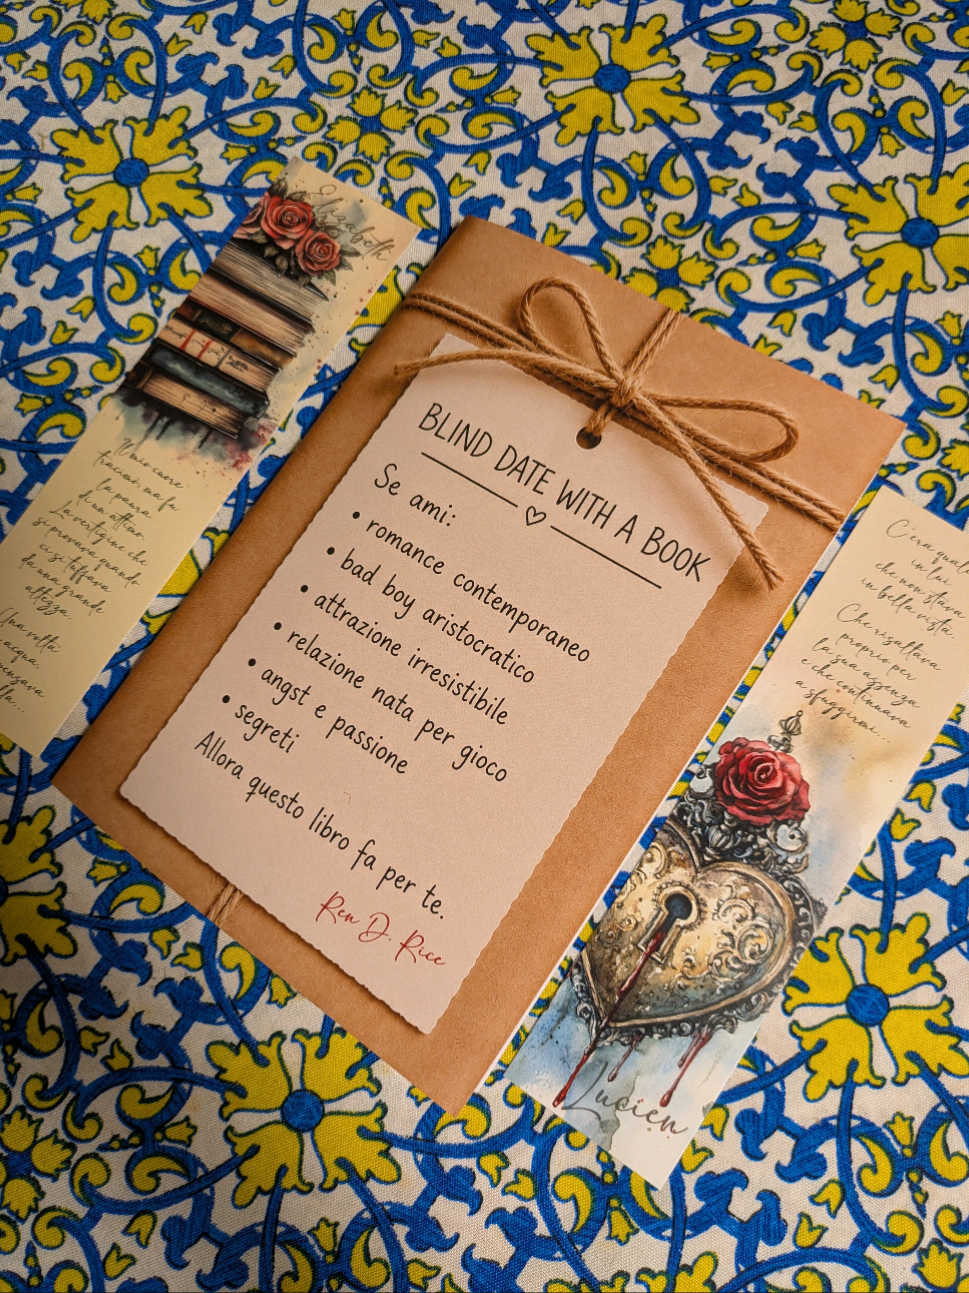 Elisabeth
Il mio cuore
tracimò, ma fu
la paura
di un attimo.
La vertigine che
si provava quando
ci si tuffava
da una grande
altezza.
Una volta
acqua,
pensava
BLIND DATE WITH A BOOK
Se ami:
• romance contemporaneo
• bad boy aristocratico
• attrazione irresistibile
• relazione nata per gioco
• angst e passione
• segreti
Allora questo libro fa per te.
Ren D. Rice
C'era qual
in lui
che non stava
in bella vista.
Che risaltava
proprio per
la sua assenza
e che continuava
a sfuggirmi...
Lucien